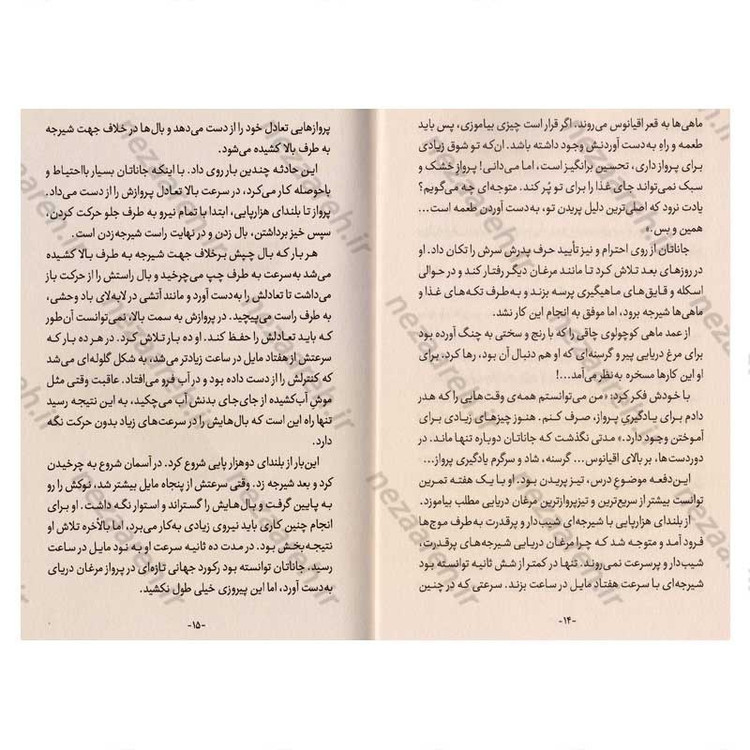 ماهی‌ها به قعر اقیانوس می‌روند. اگر قرار است چیزی بیاموزی، پس باید
طعمه و راهِ به‌دست آوردنش وجود داشته باشد. آن‌که تو شوق زیادی
برای پرواز داری، تحسین برانگیز است، اما می‌دانی! پرواز خشک و
سبک نمی‌تواند جای غذا را برای تو پُر کند. متوجه‌ای چه می‌گویم؟
یادت نرود که اصلی‌ترین دلیل پریدن تو، به‌دست آوردن طعمه است...
همین و بس.»
جاناتان از روی احترام و نیز تأیید حرف پدرش سرش را تکان داد. او
در روزهای بعد تلاش کرد تا مانند مرغان دیگر رفتار کند و در حوالی
اسکله و قایق‌های ماهیگیری پرسه بزند و به‌طرف تکه‌های غذا و
ماهی‌ها شیرجه برود، اما موفق به انجام این کار نشد.
از عمد ماهی کوچولوی چاقی را که با رنج و سختی به چنگ آورده بود
برای مرغ دریایی پیر و گرسنه‌ای که او هم دنبال آن بود، رها کرد. برای
او این کارها مسخره به‌نظر می‌آمد...!
با خودش فکر کرد: «من می‌توانستم همه‌ی وقت‌هایی را که هدر
دادم برای یادگیریِ پرواز، صرف کنم. هنوز چیزهای زیادی برای
آموختن وجود دارد.» مدتی نگذشت که جاناتان دوباره تنها ماند. در
دوردست‌ها، بر بالای اقیانوس... گرسنه، شاد و سرگرم یادگیری پرواز...
این‌دفعه موضوعِ درس، تیز پریدن بود. او با یک هفته تمرین
توانست بیشتر از سریع‌ترین و تیزپروازترین مرغان دریایی مطلب بیاموزد.
از بلندای هزارپایی با شیرجه‌ای شیب‌دار و پرقدرت به‌طرف موج‌ها
فرود آمد و متوجه شد که چرا مرغان دریایی شیرجه‌های پرقدرت،
شیب‌دار و پرسرعت نمی‌روند. تنها در کمتر از شش ثانیه توانسته بود
شیرجه‌ای با سرعت هفتاد مایل در ساعت بزند. سرعتی که در چنین
-۱۴-
پروازهایی تعادل خود را از دست می‌دهد و بال‌ها در خلاف جهت شیرجه
به طرف بالا کشیده می‌شود.
این حادثه چندین بار روی داد. با اینکه جاناتان بسیار بااحتیاط و
باحوصله کار می‌کرد، در سرعت بالا تعادل پروازش را از دست می‌داد.
پرواز تا بلندای هزارپایی، ابتدا با تمام نیرو به طرف جلو حرکت کردن،
سپس خیز برداشتن، بال زدن و در نهایت راست شیرجه‌زدن است.
هر بار که بال چپش برخلاف جهت شیرجه به طرف بالا کشیده
می‌شد به‌سرعت به طرف چپ می‌چرخید و بال راستش را از حرکت باز
می‌داشت تا تعادلش را به‌دست آورد و مانند آتشی در لابه‌لای باد وحشی،
به طرف راست می‌پیچید. در پروازش به سمت بالا، نمی‌توانست آن‌طور
که باید تعادلش را حفظ کند. او ده بار تلاش کرد. در هر ده بار که
سرعتش از هفتاد مایل در ساعت زیادتر می‌شد، به شکل گلوله‌ای می‌شد
که کنترلش را از دست داده بود و در آب فرو می‌افتاد. عاقبت وقتی مثل
موش آب‌کشیده از جای‌جای بدنش آب می‌چکید، به این نتیجه رسید
تنها راه این است که بال‌هایش را در سرعت‌های زیاد بدون حرکت نگه
دارد.
این‌بار از بلندای دوهزار پایی شروع کرد. در آسمان شروع به چرخیدن
کرد و بعد شیرجه زد. وقتی سرعتش از پنجاه مایل بیشتر شد، نوکش را رو
به پایین گرفت و بال‌هایش را گستراند و استوار نگه داشت. او برای
انجام چنین کاری باید نیروی زیادی به‌کار می‌برد، اما بالأخره تلاش او
نتیجه‌بخش بود. در مدت ده ثانیه سرعت او به نود مایل در ساعت
رسید. جاناتان توانسته بود رکورد جهانی تازه‌ای در پرواز مرغان دریای
به‌دست آورد، اما این پیروزی خیلی طول نکشید.
-۱۵-
nezaareh.ir